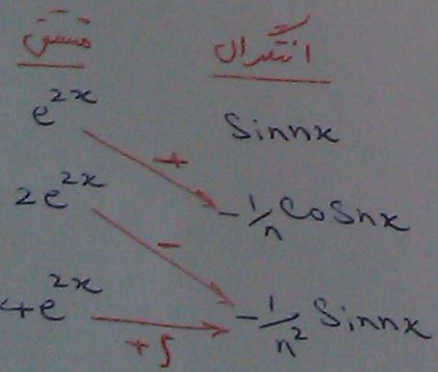 مشتق انتگرال
e^{2x} Sin nx
+
2e^{2x} -1/n Cos nx
-
4e^{2x} -1/n² Sin nx
+∫